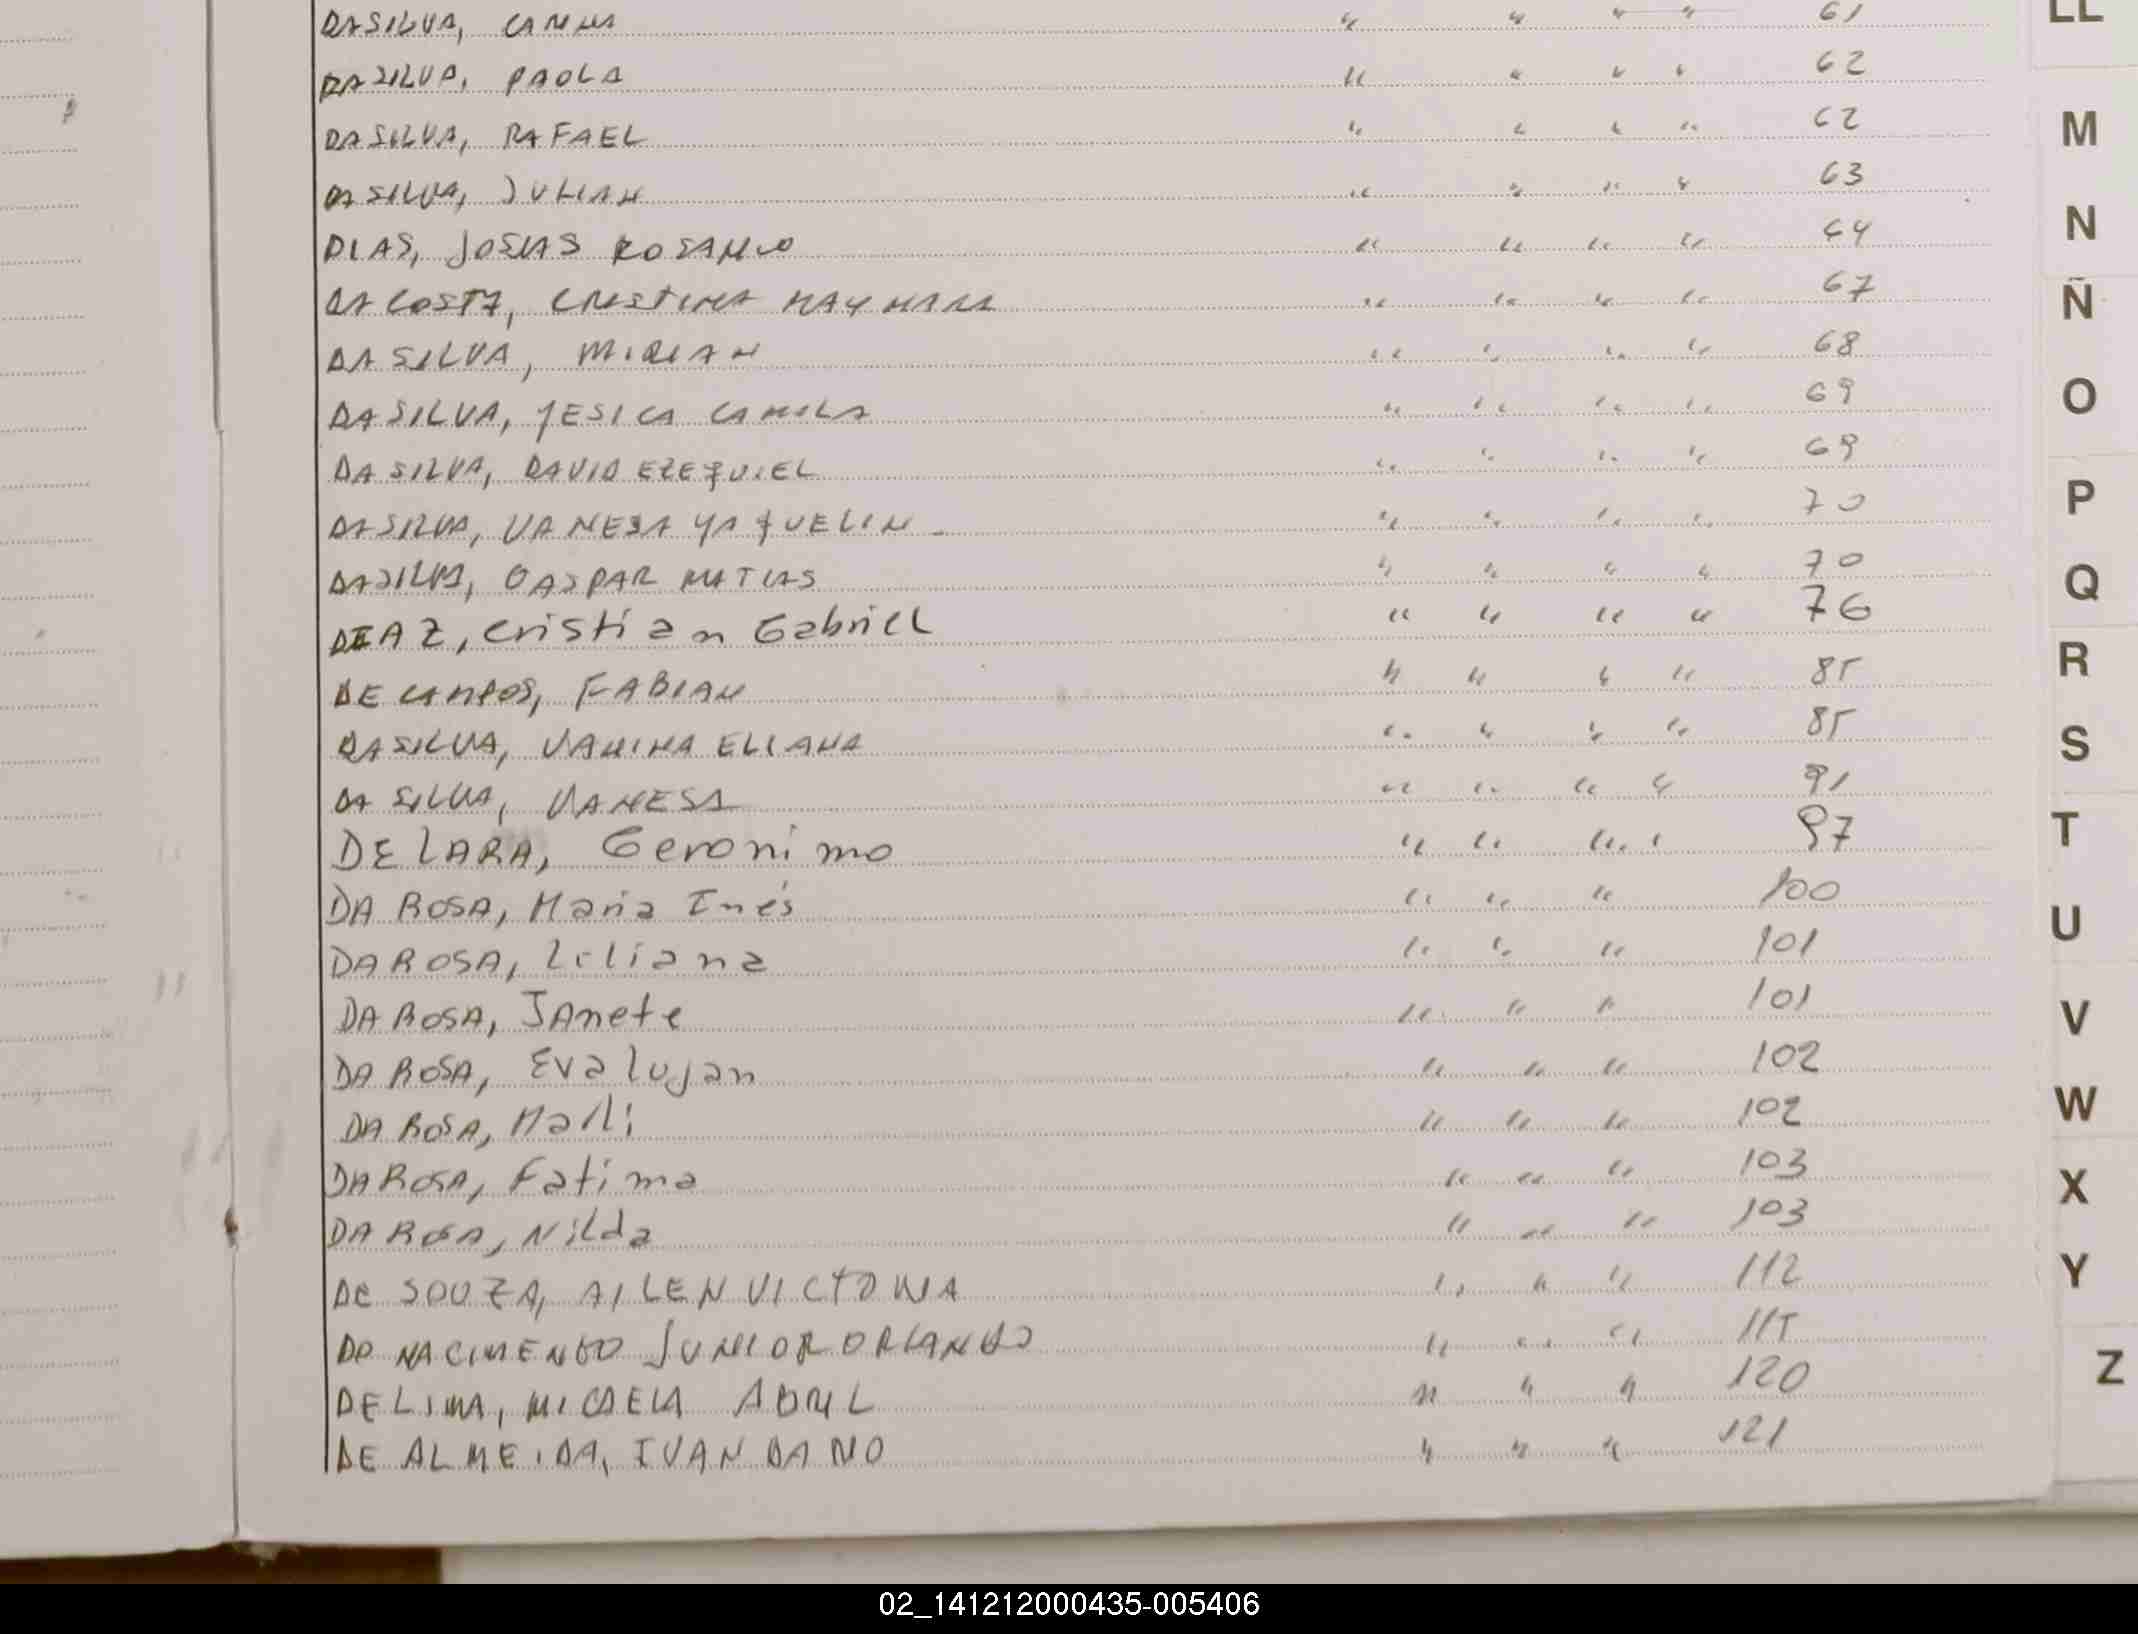 DASILVA, CAMILA " " " " 61
LL
DASILVA, PAOLA " " " " 62
DASILVA, RAFAEL " " " " 62
M
DASILVA, JULIAN " " " " 63
N
DIAS, JOSIAS ROSARIO " " " " 64
DA COSTA, CRISTINA MAYMARA " " " " 67
Ñ
DA SILVA, MIRIAN " " " " 68
O
DA SILVA, YESICA CAMILA " " " " 69
DA SILVA, DAVID EZEQUIEL " " " " 69
P
DASILVA, VANESA YAQUELIN - " " " " 70
DASILVA, GASPAR MATIAS " " " " 70
Q
DIAZ, Cristian Gabriel " " " " 76
R
DE CAMPOS, FABIAN " " " " 85
DASILVA, VANINA ELIANA " " " " 85
S
DA SILVA, VANESA " " " " 91
T
DE LARA, Geronimo " " " " 97
DA ROSA, Maria Inés " " " 100
U
DA ROSA, Liliana " " " 101
DA ROSA, JAnete " " " 101
V
DA ROSA, Eva lujan " " " 102
W
DA ROSA, Marli " " " 102
DA ROSA, Fatima " " " 103
X
DA ROSA, Nilda " " " 103
Y
DE SOUZA, AILEN VICTORIA " " " 112
DO NACIMENTO JUNIOR ORLANDO " " " 115
Z
DE LIMA, MICAELA ABRIL " " " 120
DE ALMEIDA, IVAN DARIO " " " 121
02_141212000435-005406